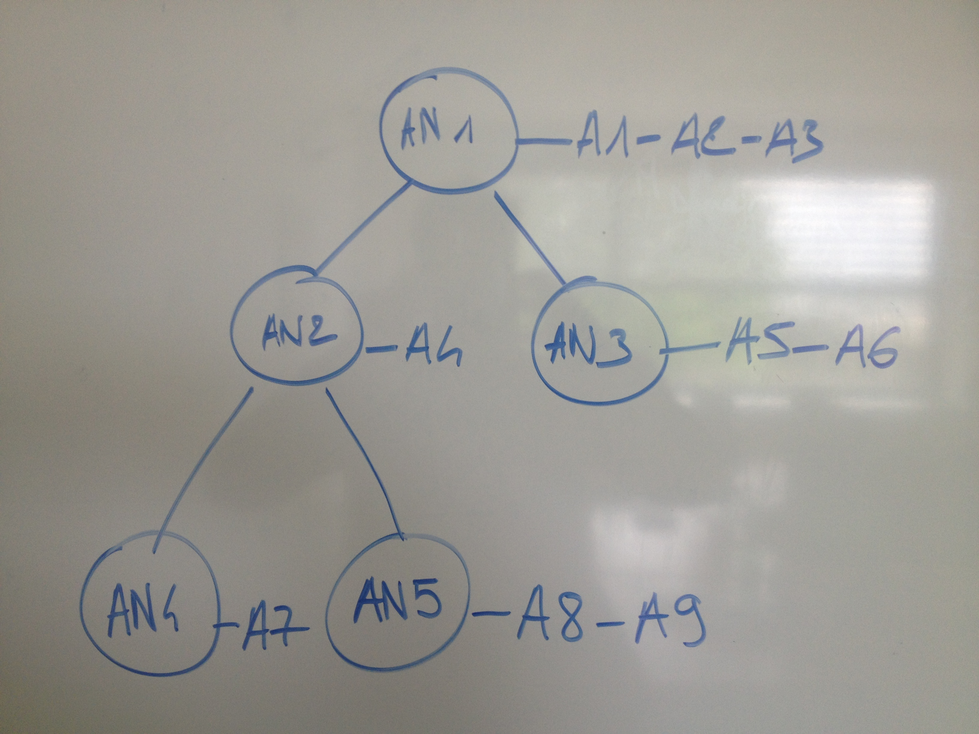 AN1 -A1-A2-A3
AN2 -A4 AN3 -A5-A6
AN4 -A7 AN5 -A8-A9